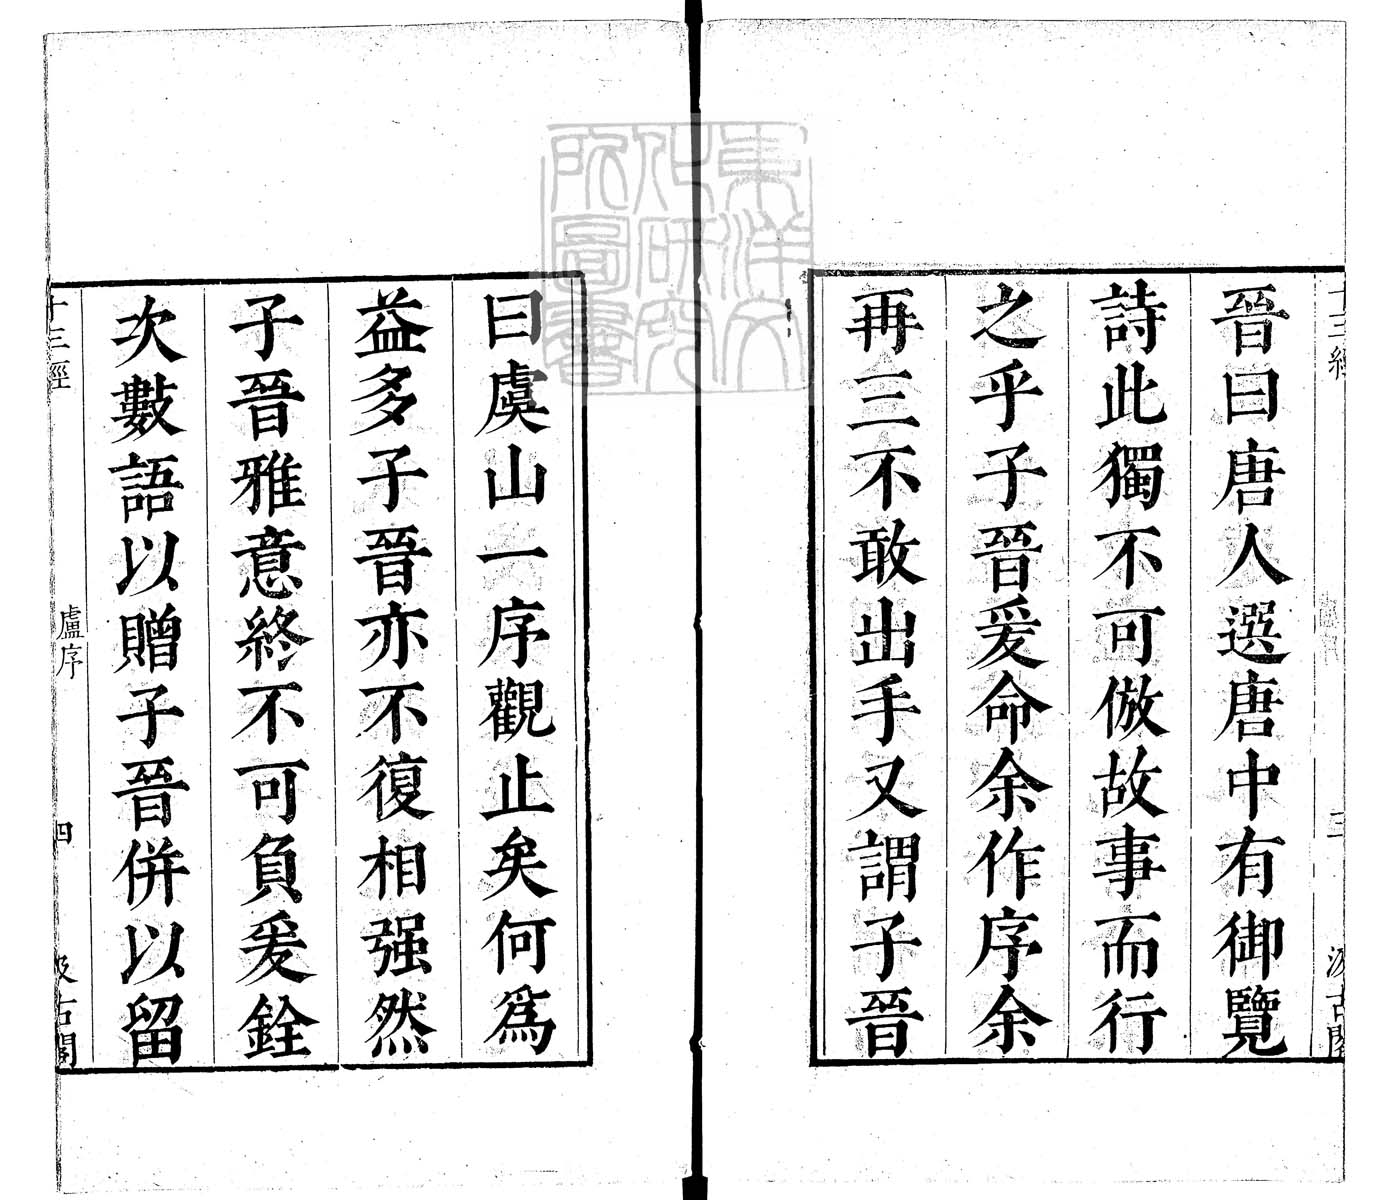 晉曰唐人選唐中有御覽
詩此獨不可倣故事而行
之乎子晉爰命余作序余
再三不敢出手又謂子晉
曰虞山一序觀止矣何爲
益多子晉亦不復相强然
子晉雅意終不可負爰銓
次數語以贈子晉併以留
十三經
三
汲古閣
十三經
盧序
四
汲古閣
東洋文
化研究
所圖書